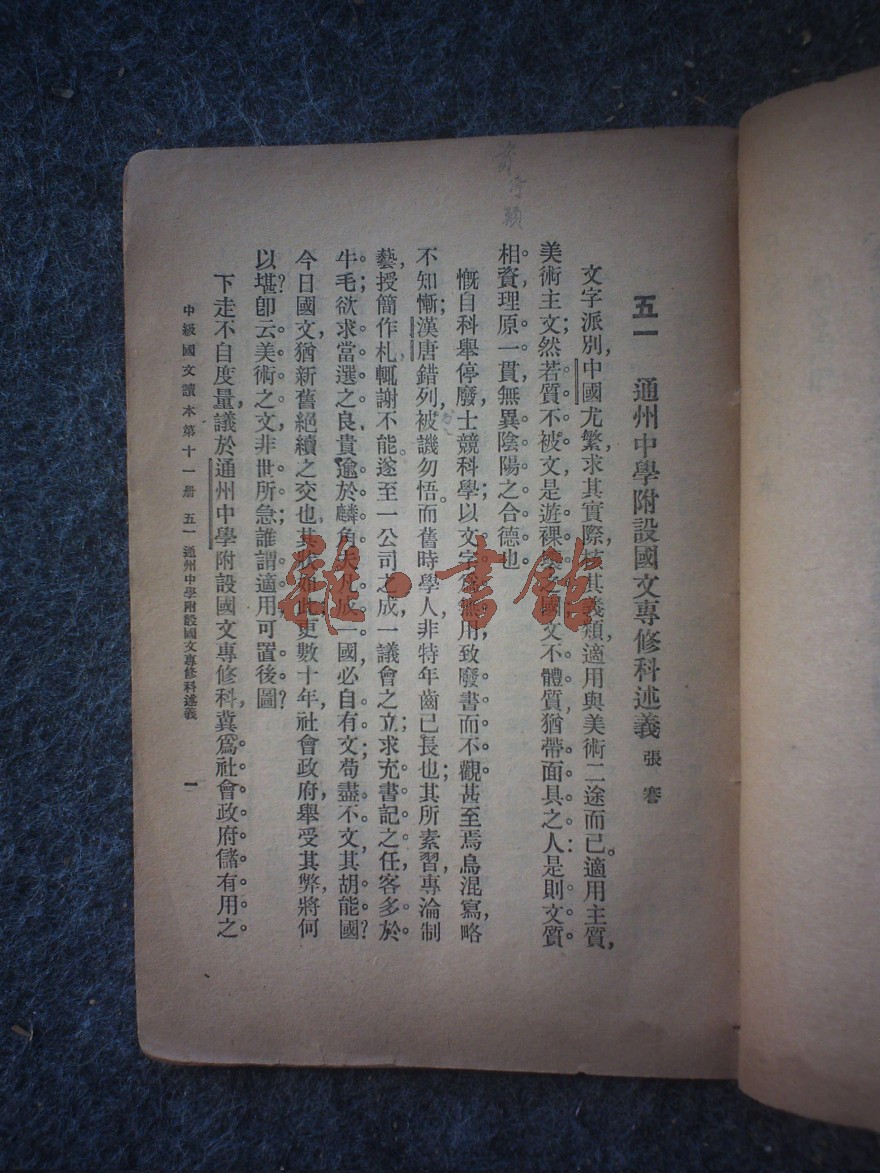 五一　通州中學附設國文專修科述義　張謇
文字派別，中國尤繁，求其實際，核其義類，適用與美術二途而已。適用主質，
美術主文；然若質不被文，是遊裸國，文不體質，猶帶面具之人：是則文質
相資，理原一貫，無異陰陽之合德也。
慨自科舉停廢，士競科學；以文字爲無用，致廢書而不觀。甚至焉烏混寫，略
不知慚；漢唐錯列，被譏勿悟。而舊時學人，非特年齒已長也；其所素習，專淪制
藝，授簡作札，輒謝不能。遂至一公司之成，一議會之立；求充書記之任，客多於
牛毛；欲求當選之良，貴逾於麟角。夫凡成一國，必自有文；苟盡不文，其胡能國？
今日國文，猶新舊絕續之交也，其狀如此，更數十年，社會政府，舉受其弊，將何
以堪？卽云美術之文，非世所急；誰謂適用，可置後圖？
下走不自度量，議於通州中學附設國文專修科，冀爲社會政府儲有用之
中級國文讀本第十一册　五一　通州中學附設國文專修科述義　一
雜·書館